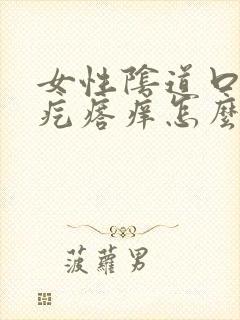 女性陰道口
疙瘩痒怎麼
菠蘿男